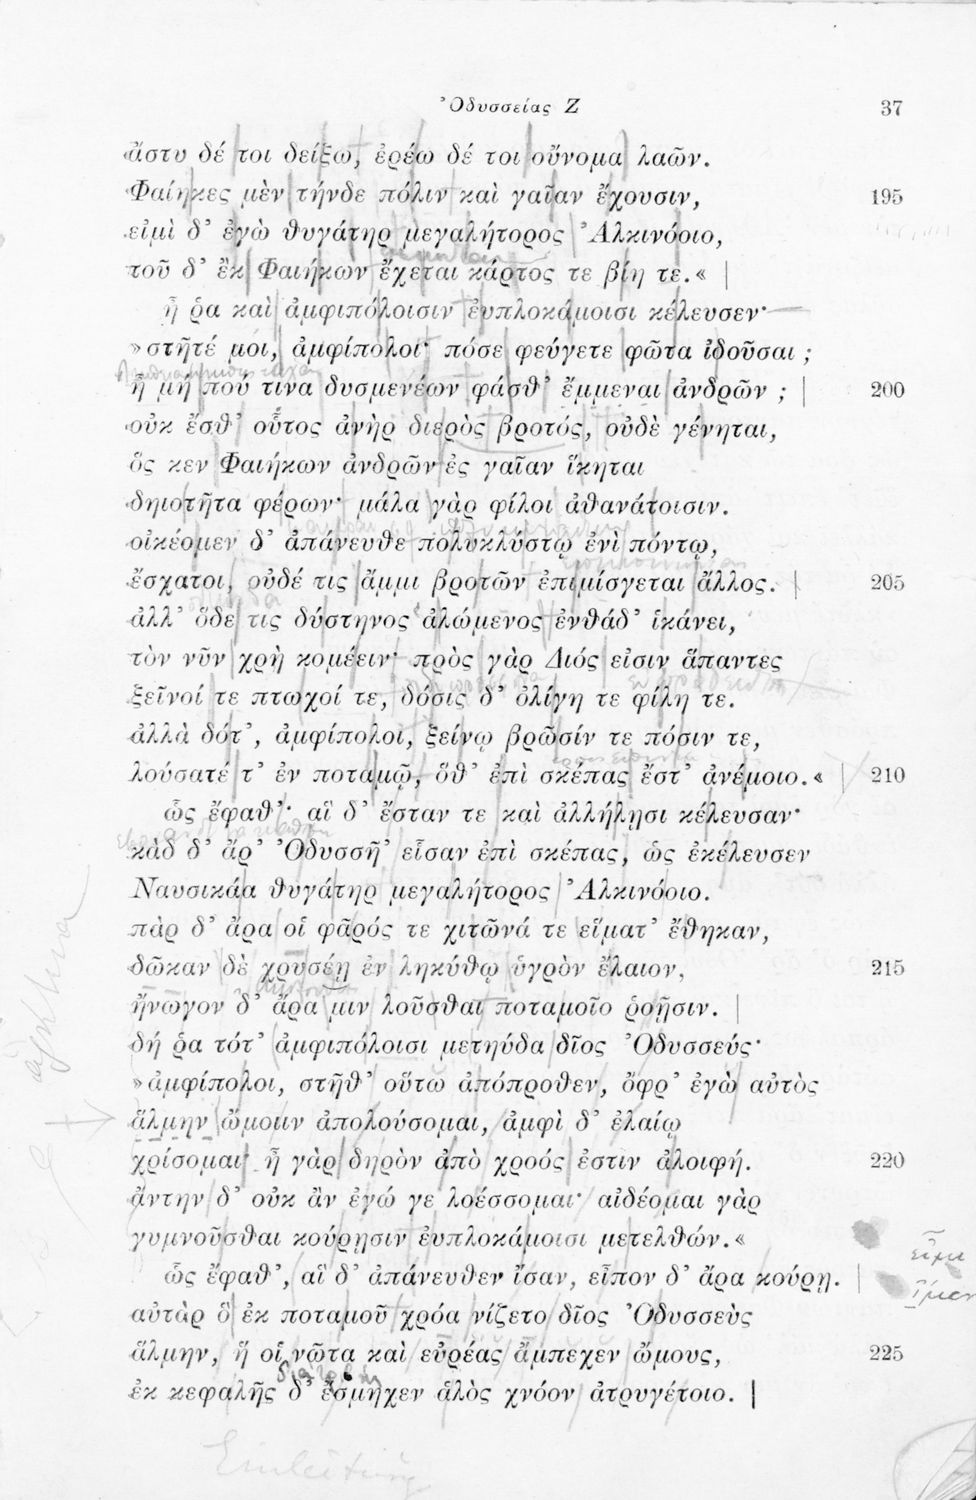 Ὀδυσσείας Ζ 37
ἄστυ δέ τοι δείξω, ἐρέω δέ τοι οὔνομα λαῶν.
Φαίηκες μὲν τήνδε πόλιν καὶ γαῖαν ἔχουσιν, 195
εἰμὶ δ' ἐγὼ θυγάτηρ μεγαλήτορος Ἀλκινόοιο,
τοῦ δ' ἐκ Φαιήκων ἔχεται κάρτος τε βίη τε.«
ἦ ῥα καὶ ἀμφιπόλοισιν ἐυπλοκάμοισι κέλευσεν·
»στῆτέ μοι, ἀμφίπολοι· πόσε φεύγετε φῶτα ἰδοῦσαι ;
ἦ μή πού τινα δυσμενέων φάσθ' ἔμμεναι ἀνδρῶν ; 200
οὐκ ἔσθ' οὗτος ἀνὴρ διερὸς βροτός, οὐδὲ γένηται,
ὅς κεν Φαιήκων ἀνδρῶν ἐς γαῖαν ἵκηται
δηιοτῆτα φέρων· μάλα γὰρ φίλοι ἀθανάτοισιν.
οἰκέομεν δ' ἀπάνευθε πολυκλύστῳ ἐνὶ πόντῳ,
ἔσχατοι, οὐδέ τις ἄμμι βροτῶν ἐπιμίσγεται ἄλλος. 205
ἀλλ' ὅδε τις δύστηνος ἀλώμενος ἐνθάδ' ἱκάνει,
τὸν νῦν χρὴ κομέειν· πρὸς γὰρ Διός εἰσιν ἅπαντες
ξεῖνοί τε πτωχοί τε, δόσις δ' ὀλίγη τε φίλη τε.
ἀλλὰ δότ', ἀμφίπολοι, ξείνῳ βρῶσίν τε πόσιν τε,
λούσατέ τ' ἐν ποταμῷ, ὅθ' ἐπὶ σκέπας ἔστ' ἀνέμοιο.« 210
ὣς ἔφαθ'· αἳ δ' ἔσταν τε καὶ ἀλλήλῃσι κέλευσαν·
κὰδ δ' ἄρ' Ὀδυσσῆ' εἷσαν ἐπὶ σκέπας, ὡς ἐκέλευσεν
Ναυσικάα θυγάτηρ μεγαλήτορος Ἀλκινόοιο.
πὰρ δ' ἄρα οἱ φᾶρός τε χιτῶνά τε εἵματ' ἔθηκαν,
δῶκαν δὲ χρυσέῃ ἐν ληκύθῳ ὑγρὸν ἔλαιον, 215
ἤνωγον δ' ἄρα μιν λοῦσθαι ποταμοῖο ῥοῇσιν.
δή ῥα τότ' ἀμφιπόλοισι μετηύδα δῖος Ὀδυσσεύς·
»ἀμφίπολοι, στῆθ' οὕτω ἀπόπροθεν, ὄφρ' ἐγὼ αὐτὸς
ἅλμην ὤμοιιν ἀπολούσομαι, ἀμφὶ δ' ἐλαίῳ
χρίσομαι· ἦ γὰρ δηρὸν ἀπὸ χροός ἐστιν ἀλοιφή. 220
ἄντην δ' οὐκ ἂν ἐγώ γε λοέσσομαι· αἰδέομαι γὰρ
γυμνοῦσθαι κούρῃσιν ἐυπλοκάμοισι μετελθών.«
ὣς ἔφαθ', αἱ δ' ἀπάνευθεν ἴσαν, εἶπον δ' ἄρα κούρῃ.
αὐτὰρ ὃ ἐκ ποταμοῦ χρόα νίζετο δῖος Ὀδυσσεὺς
ἅλμην, ἥ οἱ νῶτα καὶ εὐρέας ἄμπεχεν ὤμους, 225
ἐκ κεφαλῆς δ' ἔσμηχεν ἁλὸς χνόον ἀτρυγέτοιο.
Einleitung